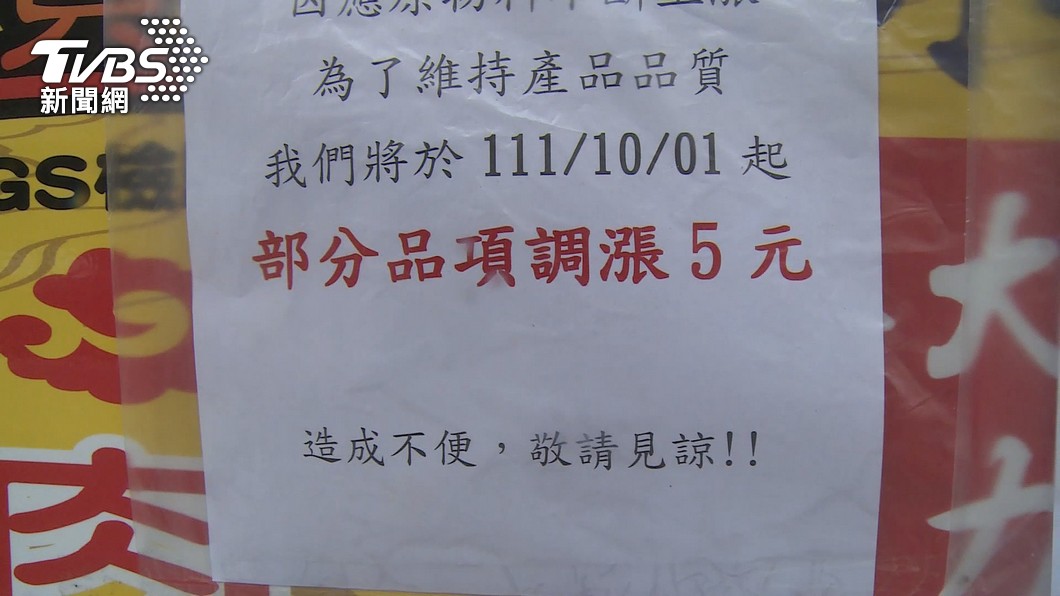 TVBS
新聞網
因應原物料不斷上漲
為了維持產品品質
我們將於 111/10/01 起
部分品項調漲 5 元
造成不便，敬請見諒!!
GS檢
大
肉